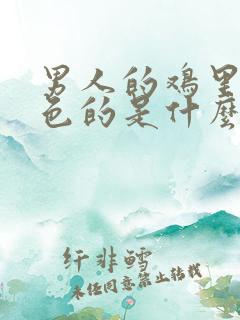 男人的鸡里
色的是什麽
纤非鳕
未经同意禁止转载